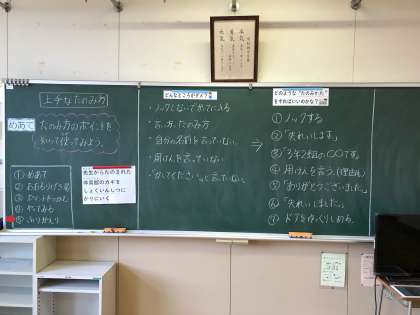 上手なたのみ方
めあて
たのみ方のポイントを
知って使ってみよう。
① めあて
④ やってみる
⑤ ふりかえり
先生からたのまれた
体育館のカギを
しょくいんしつに
かりにいく
どんなところがダメ?
・ノックしないでかってに入る
・言い方、たのみ方
・自分の名前を言っていない。
・用けんを言っていない
・「かしてください。」と言っていない。
⇒
どのような"たのみかた"
をすればいいのかな?
① ノックする
② 「失礼します。」
③ 「3年2組の〇〇です。」
④ 用けんを言う。(理由も)
⑤ 「ありがとうございました。」
⑥ 「失れいしました。」
⑦ ドアをゆっくりしめる。